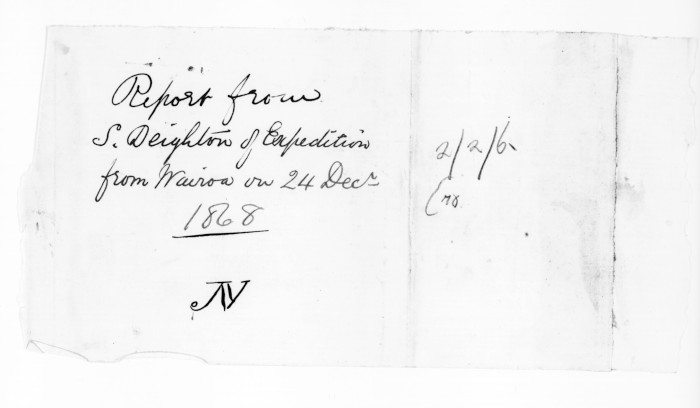 Report from
S. Deighton of Expedition
from Wairoa on 24 Decr
1868